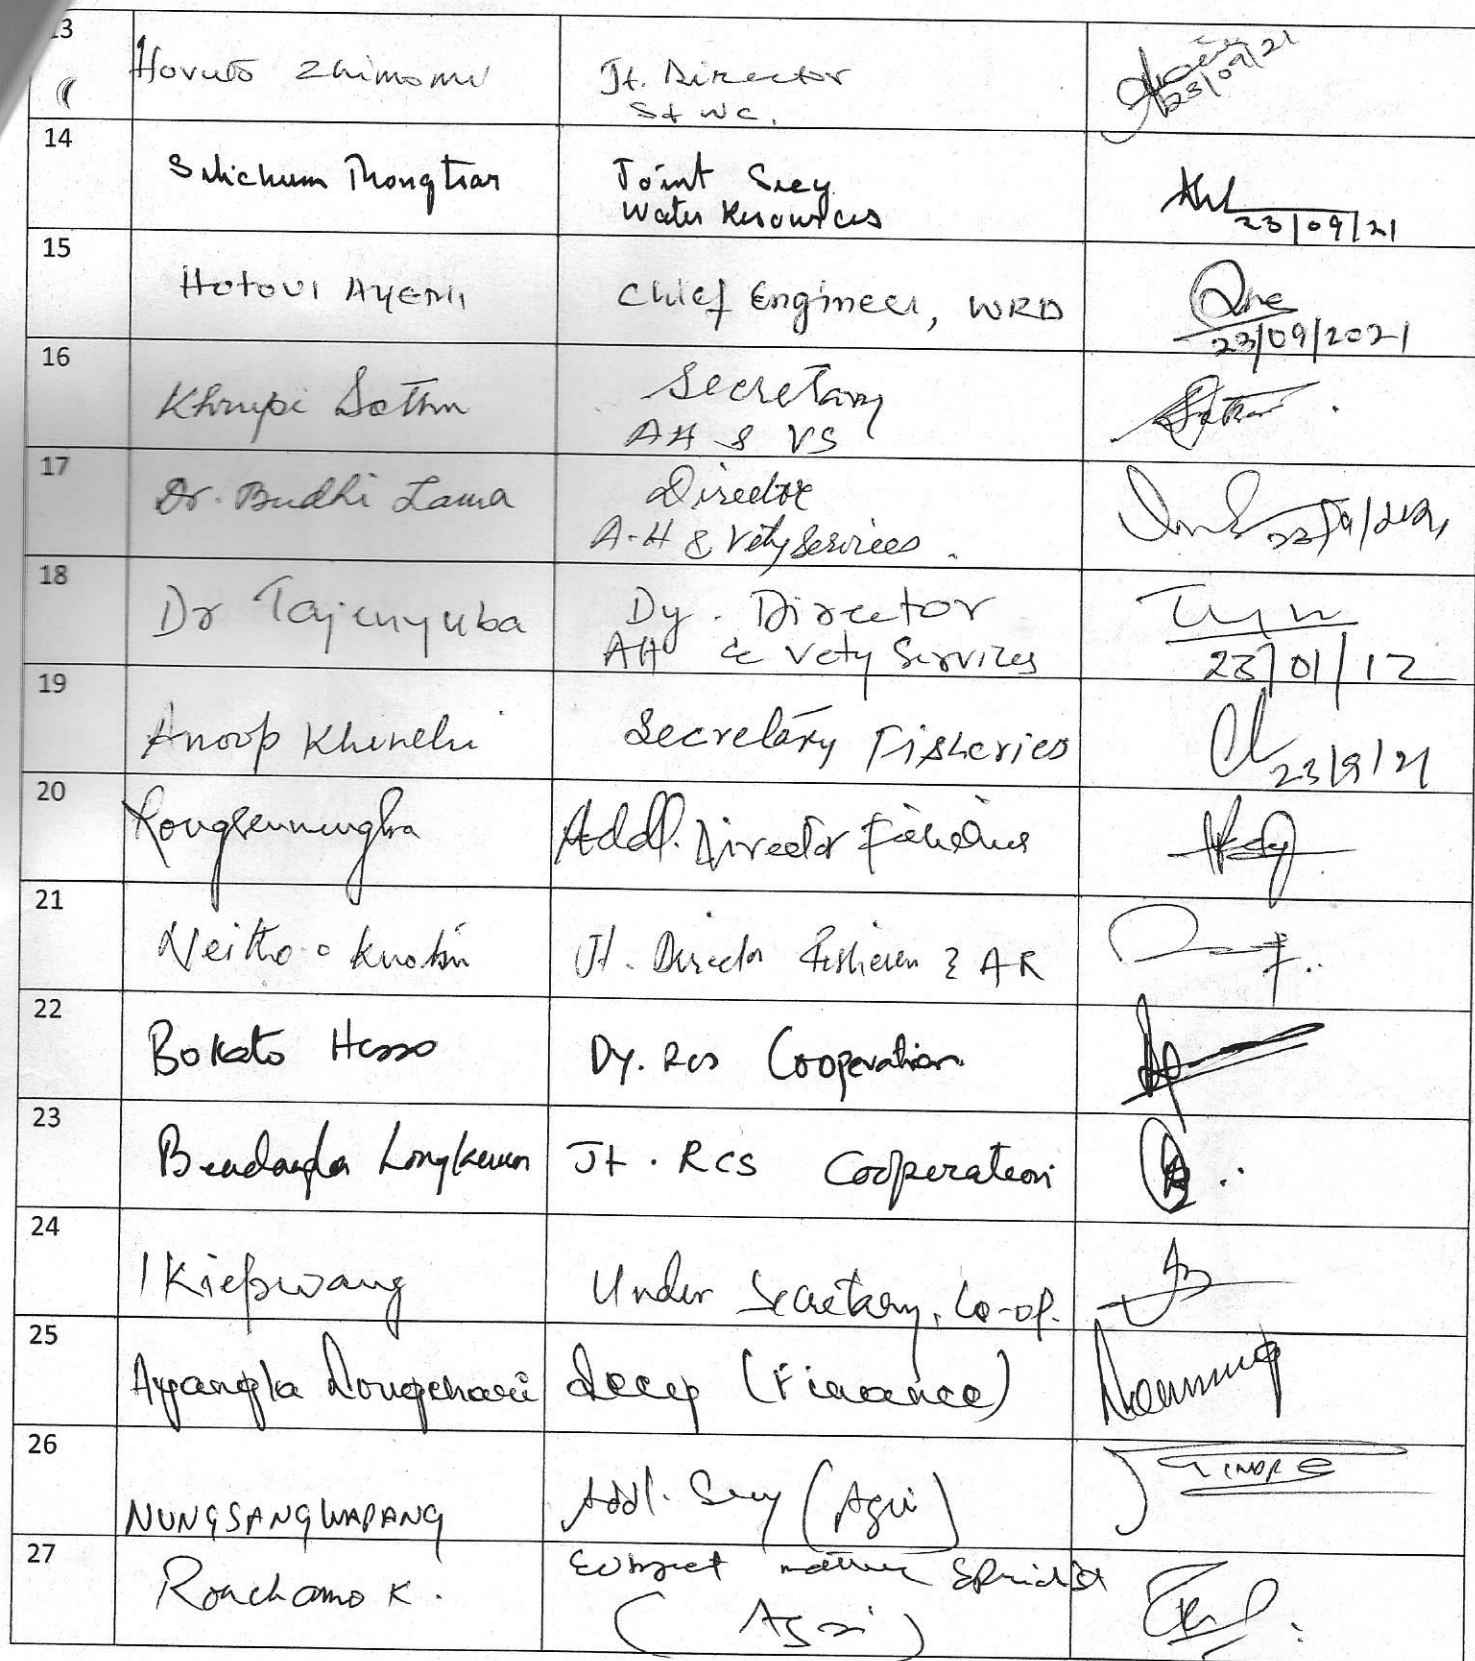 13 Hovuto Zhimomi Jt. Director 23/09/21
S & WC.
14
Thongtsar Joint Secy
Water Resources 23/09/21
15
Hotovi Ayemi Chief Engineer, WRD
23/09/2021
16
Khrupi Sothu Secretary
AH & VS
17
Dr. Budhi Lama Director
A.H & Vety Services.
18
Dr Tajenyuba Dy. Director
AH & Vety Services 23/01/12
19
Anoop Khinchi Secretary Fisheries 23/9/21
20
Rongsennungba Addl. Director Fisheries
21
Neitho-o Kuotsu Jt. Director Fisheries & AR
22
Bokato Hesso Dy. RCS Cooperation
23
Bendangla Longkumer Jt. RCS Cooperation
24
I Kiepwang Under Secretary, Co-op.
25
Ayangla Secy (Finance)
26
NUNGSANGWAPANG Addl. Secy (Agri)
27
Ronchamo K. Subject matter Specialist
(Agri)